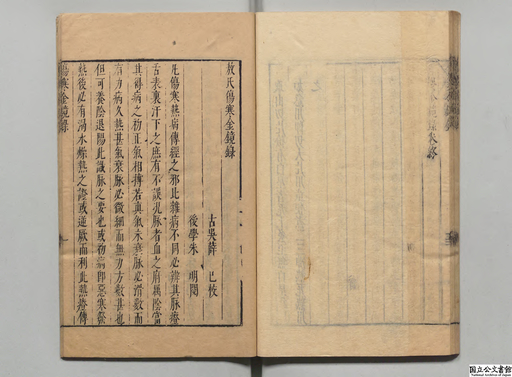 敖氏傷寒金鏡錄
古吳薛 己校
後學朱 明閱
凡傷寒熱病傳經之邪比雜病不同必辨其脉證
舌表裏汗下之庶有不誤況脉者血之府屬陰當
其得病之初正氣相搏若真氣未衰脉必滑數而
有力病久熱甚氣衰脉必微細而無力方數甚也
但可養陰退陽此識脉之要也或初病即惡寒發
熱後必有渴水燥熱之證或逆厥而利此熱證傳
傷寒金鏡錄
国立公文書館
National Archives of Japan